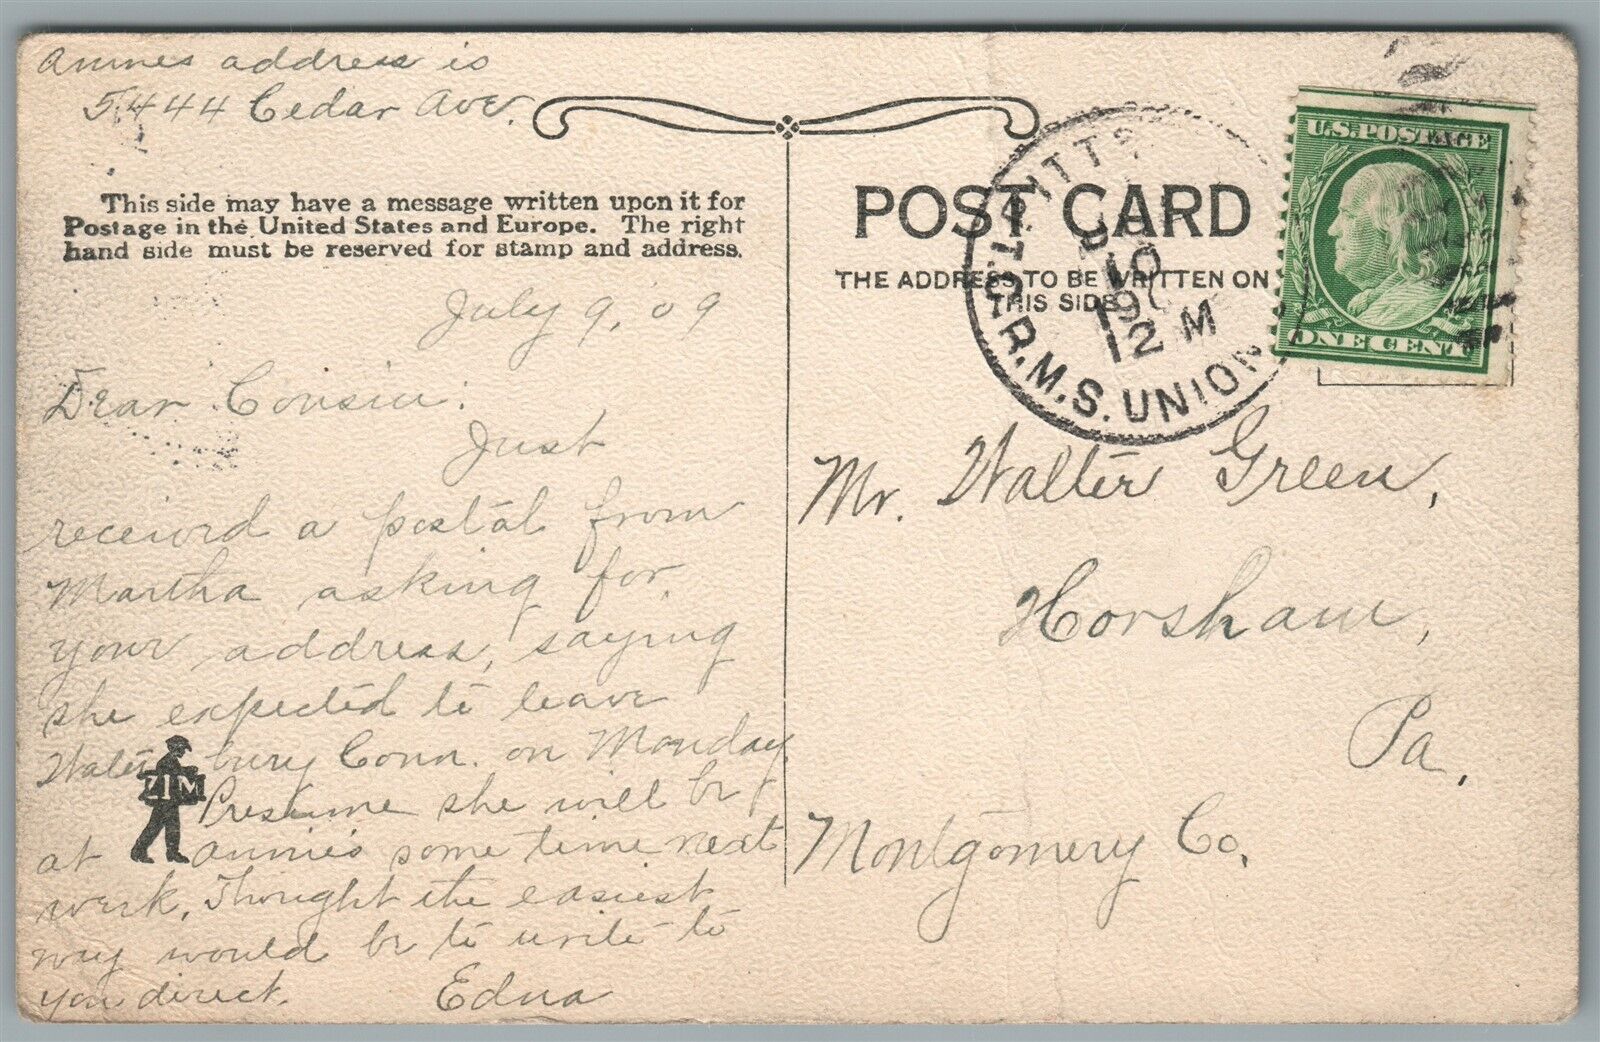 Annies address is
5444 Cedar Ave.
This side may have a message written upon it for
Postage in the United States and Europe. The right
hand side must be reserved for stamp and address.
July 9, 09
Dear Cousin:
Just
received a postal from
Martha asking for
your address, saying
she expected to leave
Waterbury Conn. on Monday
Presume she will be
at Annie's some time next
week. Thought the easiest
way would be to write to
you direct.
Edna
ZIM
POST CARD
THE ADDRESS TO BE WRITTEN ON
THIS SIDE
PITTS
10
12 M
R.M.S. UNION
U.S. POSTAGE
ONE CENT
Mr. Walter Green,
Horsham,
Pa.
Montgomery Co.